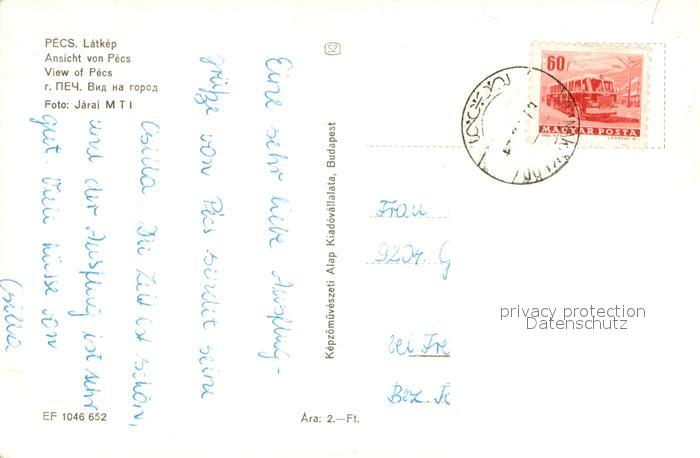 PÉCS. Látkép
Ansicht von Pécs
View of Pécs
г. ПЕЧ. Вид на город
Foto: Járai MTI
Eine sehr liebe Ausflug-
grüße von Pécs sendit seine
Csilla. Die Zeit ist schön,
und der Ausflug ist sehr
gut. Viele küsse von
Csilla
EF 1046 652
Ára: 2.—Ft.
Képzőművészeti Alap Kiadóvállalata, Budapest
SZ
60f
MAGYAR POSTA
Frau
9204. G
bei Fre
Bez. K
privacy protection
Datenschutz